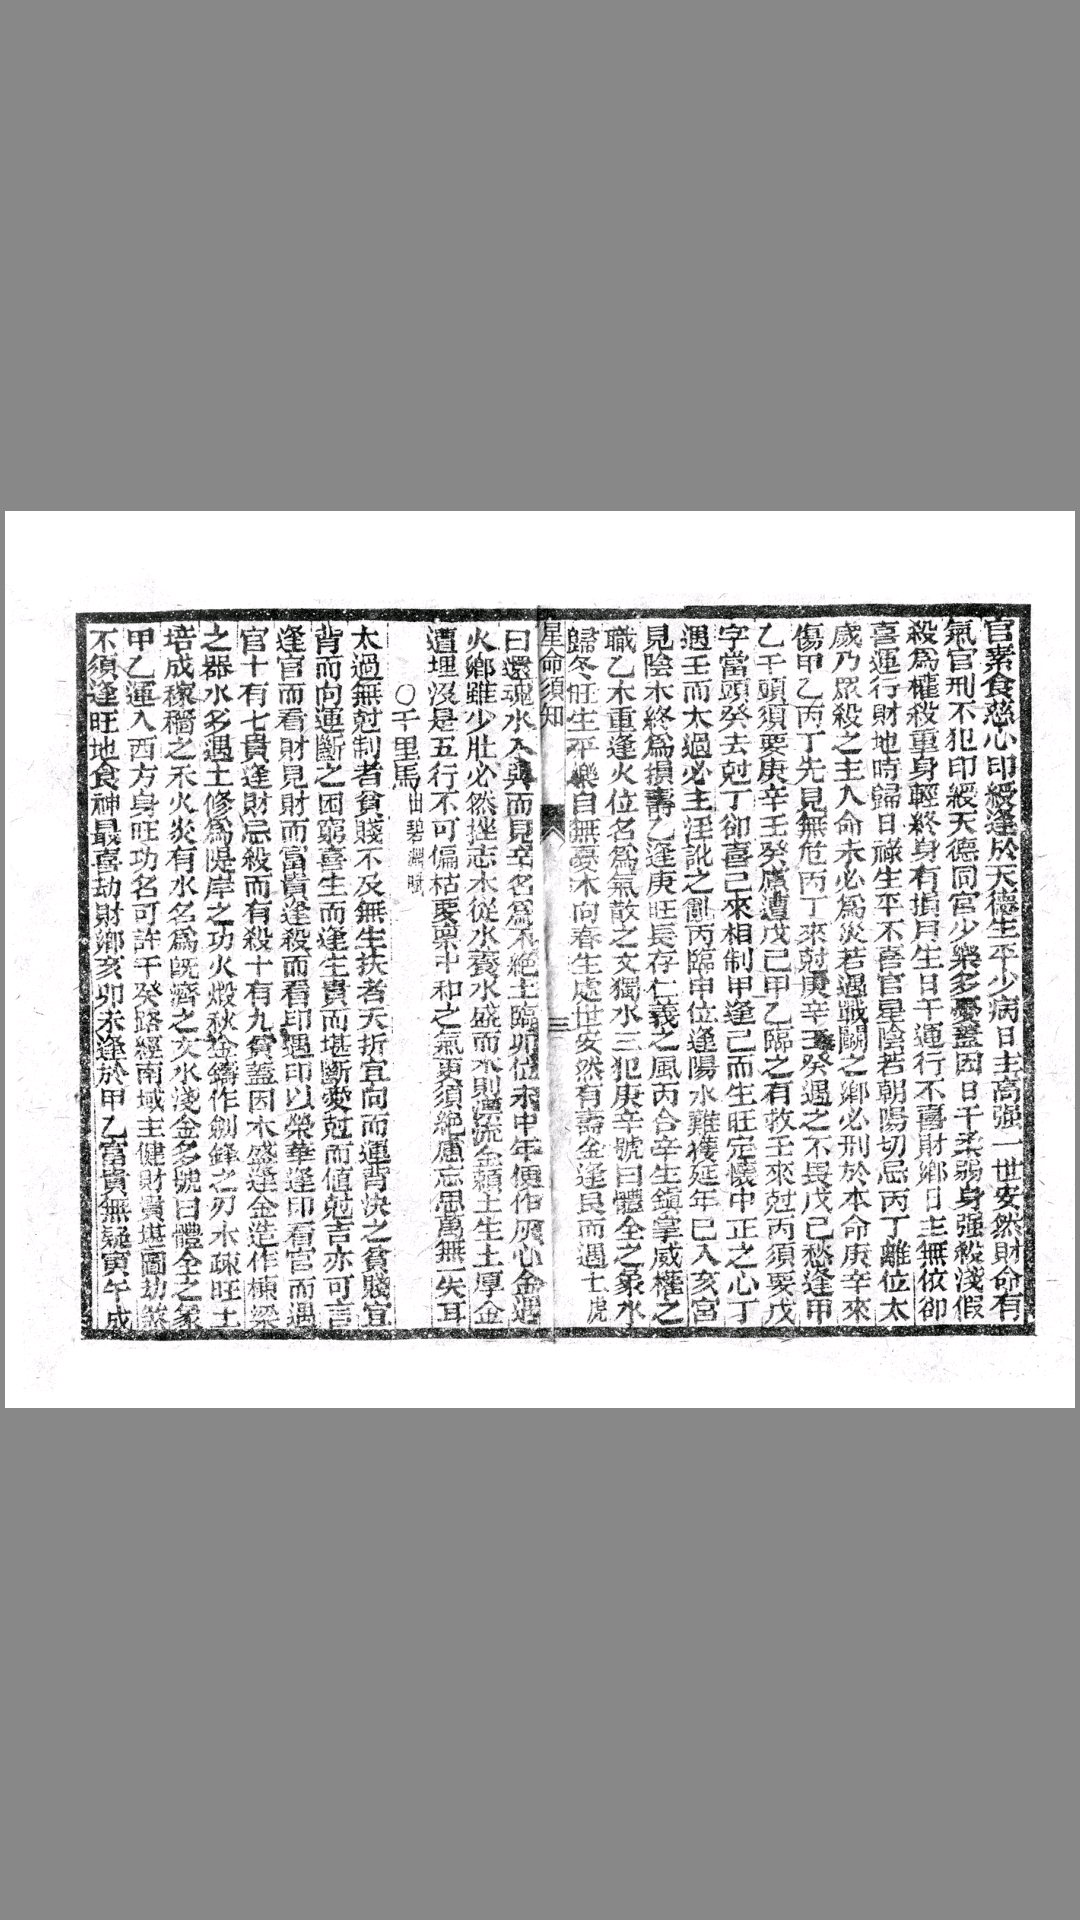 官素食慈心印綬逢於天德生平少病日主高强一世安然財命有
氣官刑不犯印綬天德同宮少樂多憂蓋因日干柔弱身强殺淺假
殺爲權殺重身輕終身有損月生日干運行不喜財鄉日主無依卻
喜運行財地時歸日祿生平不喜官星陰若朝陽切忌丙丁離位太
歲乃眾殺之主入命未必爲災若遇戰鬬之鄉必刑於本命庚辛來
傷甲乙丙丁先見無危丙丁來尅庚辛壬癸遇之不畏戊己愁逢甲
乙干頭須要庚辛壬癸慮遭戊己甲乙臨之有救壬來尅丙須要戊
字當頭癸去尅丁卻喜己來相制甲逢己而生旺定懷中正之心丁
遇壬而太過必主淫訛之亂丙臨申位逢陽水難獲延年己入亥宮
見陰木終爲損壽乙逢庚旺長存仁義之風丙合辛生鎮掌威權之
職乙木重逢火位名爲氣散之文獨水三犯庚辛號曰體全之象水
歸冬旺生平樂自無憂木向春生處世安然有壽金逢艮而遇土虎
星命須知 三
曰還魂水入巽而見辛名爲不絕土臨卯位未中年便作灰心金遇
火鄉雖少壯必然挫志木從水養水盛而木則漂流金賴土生土厚金
遭埋沒是五行不可偏枯要稟中和之氣更須絕慮忘思萬無一失耳
○千里馬 曲碧淵賦
太過無尅制者貧賤不及無生扶者夭折宜向而運背決之貧賤宜
背而向運斷之困窮喜生而逢生貴而堪斷愛尅而値尅吉亦可言
逢官而看財見財而富貴逢殺而看印遇印以榮華逢印看官而遇
官十有七貴逢財忌殺而有殺十有九貧蓋因木盛逢金造作棟梁
之器水多遇土修爲隄岸之功火煅秋金鑄作劍鋒之刃木疎旺土
培成稼穡之禾火炎有水名爲旣濟之文水淺金多號曰體全之象
甲乙運入西方身旺功名可許壬癸路經南域主健財貴堪圖劫煞
不須逢旺地食神最喜劫財鄉亥卯未逢於甲乙富貴無疑寅午戌